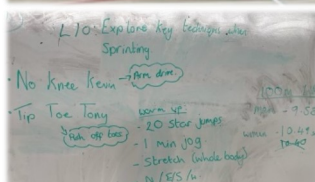 L10 Explore key techniques when
Sprinting.
• No Knee Kevin → Arm drive.
• Tip Toe Tony
Push off toes
warm up
- 20 Star jumps
- 1 min jog
- Stretch (whole body)
N/E/S/W
100m
men - 9.58
women - 10.49